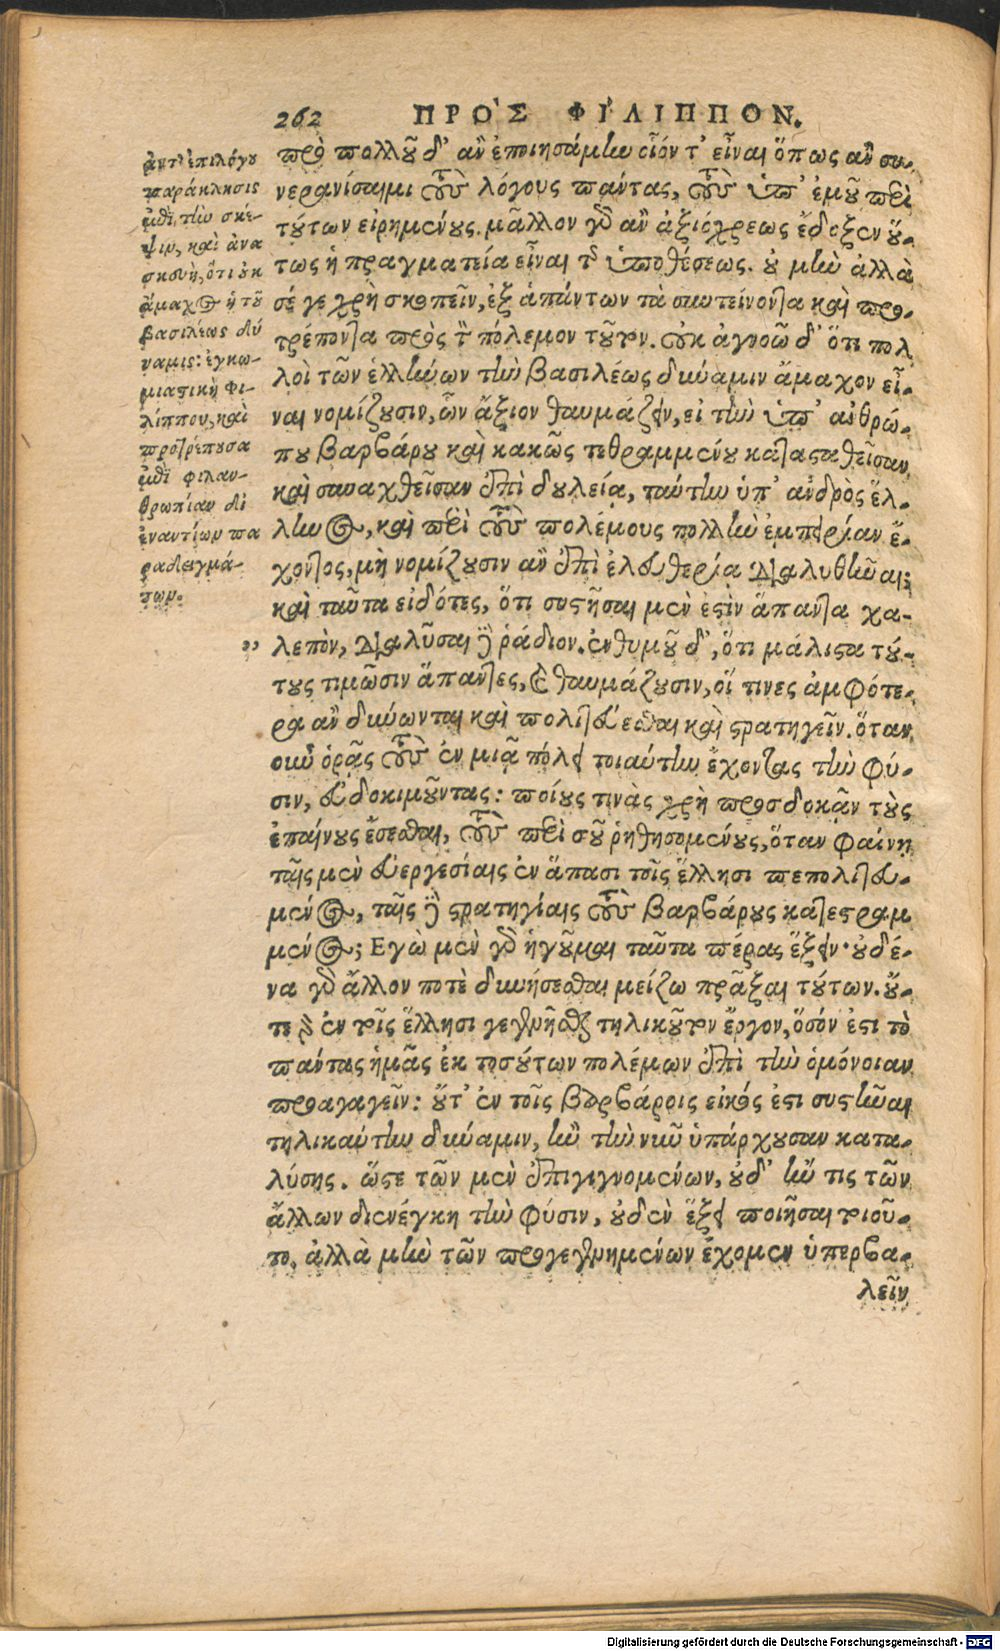 262 ΠΡΟ`Σ ΦΙ´ΛΙΠΠΟΝ.
ἀντ' ἐπιλόγου
παράκλησις
ἐπὶ τὴν σκέ-
ψιν, καὶ ἀνα
σκευὴ, ὅτι οὐκ
ἄμαχος ἡ τοῦ
βασιλέως δύ
ναμις: ἐγκω-
μιαστικὴ Φι-
λίππου, καὶ
προτρέπουσα
ἐπὶ φιλαν-
θρωπίαν δι'
ἐναντίων πα
ραδειγμά-
των.
πρὸ πολλοῦ δ' ἂν ἐποιησάμην οἷόν τ' εἶναι ὅπως ἂν συ-
νερανίσαιμι τοὺς λόγους πάντας, τοὺς ὑπ' ἐμοῦ περὶ
τούτων εἰρημένους. μᾶλλον γὰρ ἂν ἀξιόχρεως ἔδοξεν οὕ-
τως ἡ πραγματεία εἶναι τῆς ὑποθέσεως. οὐ μὴν ἀλλὰ
σέ γε χρὴ σκοπεῖν, ἐξ ἁπάντων τὰ συντείνοντα καὶ προ-
τρέποντα πρὸς τὸν πόλεμον τοῦτον. οὐκ ἀγνοῶ δ' ὅτι πολ
λοὶ τῶν ἑλλήνων τὴν βασιλέως δύναμιν ἄμαχον εἶ-
ναι νομίζουσιν, ὧν ἄξιον θαυμάζειν, εἰ τὴν ὑπ' ἀνθρώ-
που βαρβάρου καὶ κακῶς τεθραμμένου κατασταθεῖσαν
καὶ συναχθεῖσαν ἐπὶ δουλεία, ταύτην ὑπ' ἀνδρὸς ἕλ-
ληνος, καὶ περὶ τοὺς πολέμους πολλὴν ἐμπειρίαν ἔ-
χοντος, μὴ νομίζουσιν ἂν ἐπὶ ἐλευθερία διαλυθῆναι;
καὶ ταῦτα εἰδότες, ὅτι συστῆσαι μέν ἐστιν ἅπαντα χα-
„ λεπὸν, διαλῦσαι δὲ ῥάδιον. ἐνθυμοῦ δ', ὅτι μάλιστα τού-
τους τιμῶσιν ἅπαντες, καὶ θαυμάζουσιν, οἵ τινες ἀμφότε-
ρα ἂν δύνωνται καὶ πολιτεύεσθαι καὶ στρατηγεῖν. ὅταν
οὖν ὁρᾷς τοὺς ἐν μιᾷ πόλει τοιαύτην ἔχοντας τὴν φύ-
σιν, εὐδοκιμοῦντας: ποίους τινὰς χρὴ προσδοκᾶν τοὺς
ἐπαίνους ἔσεσθαι, τοὺς περὶ σοῦ ῥηθησομένους, ὅταν φαίνῃ
ταῖς μὲν εὐεργεσίαις ἐν ἅπασι τοῖς ἕλλησι πεπολιτευ-
μένος, ταῖς δὲ στρατηγίαις τοὺς βαρβάρους κατεστραμ
μένος; Ἐγὼ μὲν γὰρ ἡγοῦμαι ταῦτα πέρας ἕξειν· οὐδέ-
να γὰρ ἄλλον ποτὲ δυνήσεσθαι μείζω πρᾶξαι τούτων. οὔ-
τε γὰρ ἐν τοῖς ἕλλησι γενήσεσθαι τηλικοῦτον ἔργον, ὅσόν ἐστι τὸ
πάντας ἡμᾶς ἐκ τοσούτων πολέμων ἐπὶ τὴν ὁμόνοιαν
προαγαγεῖν: οὔτ' ἐν τοῖς βαρβάροις εἰκός ἐστι συστῆναι
τηλικαύτην δύναμιν, ἢν τὴν νῦν ὑπάρχουσαν κατα-
λύσῃς. ὥστε τῶν μὲν ἐπιγιγνομένων, οὐδ' ἤν τις τῶν
ἄλλων διενέγκῃ τὴν φύσιν, οὐδὲν ἕξει ποιῆσαι τοιοῦ-
το. ἀλλὰ μὴν τῶν προγεγενημένων ἔχομεν ὑπερβα-
λεῖν
Digitalisierung gefördert durch die Deutsche Forschungsgemeinschaft - DFG